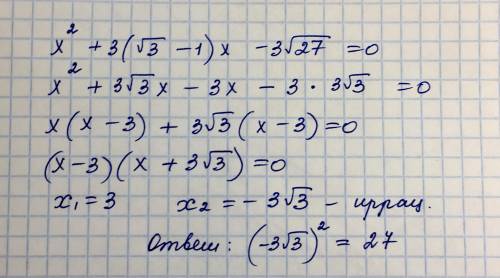 x² + 3(√3 − 1)x − 3√27 = 0
x² + 3√3x − 3x − 3 · 3√3 = 0
x(x − 3) + 3√3(x − 3) = 0
(x − 3)(x + 3√3) = 0
x₁ = 3 x₂ = − 3√3 − иррац.
Ответ: (−3√3)² = 27